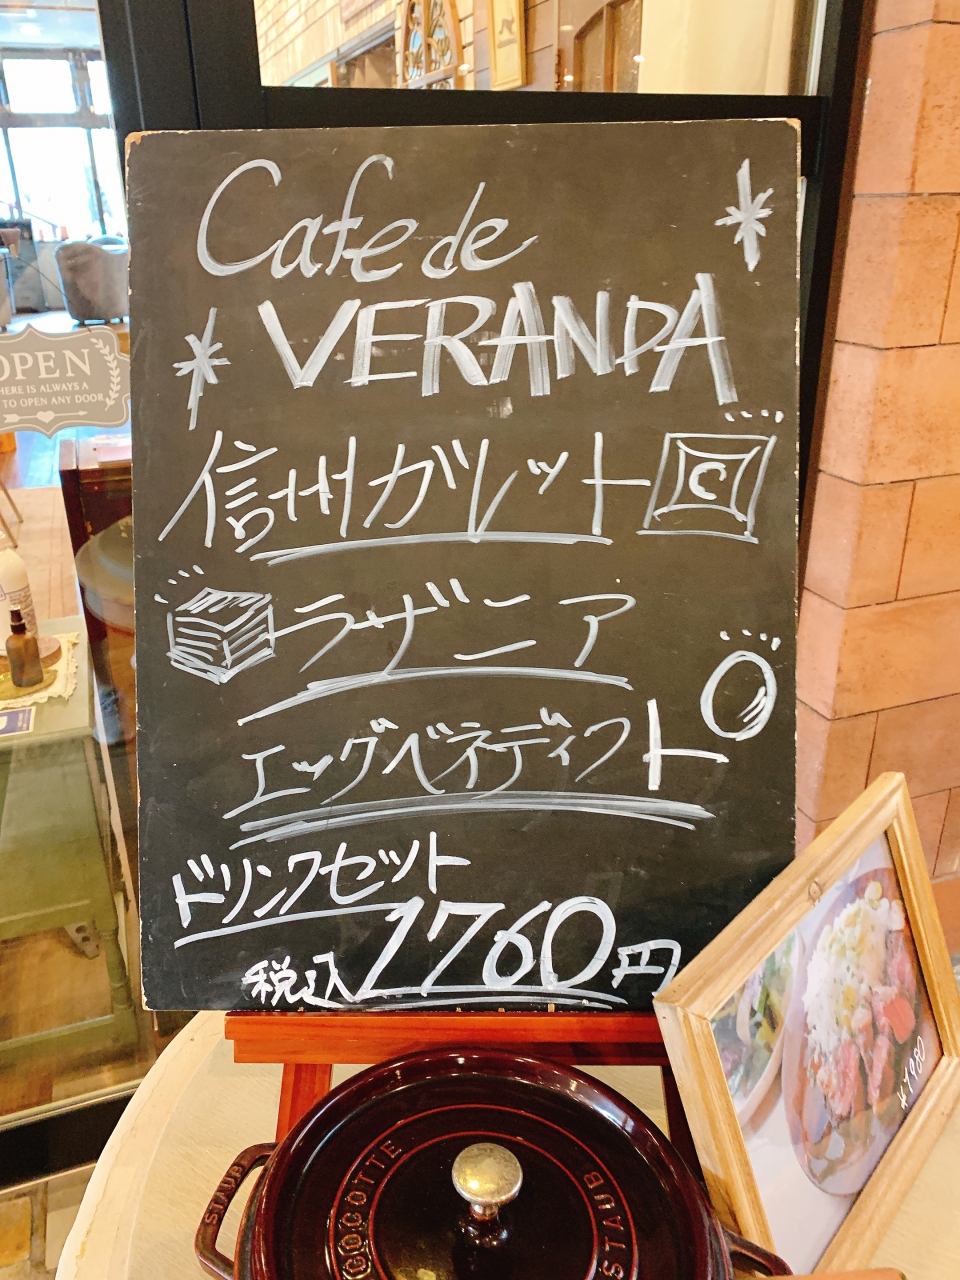 Cafe de
VERANDA
信州ガレット
C
ラザニア
エッグベネディクト
ドリンクセット
税込1760円
OPEN
HERE IS ALWAYS A
TO OPEN ANY DOOR
¥1980
STAUB
COCOTTE
STAUB